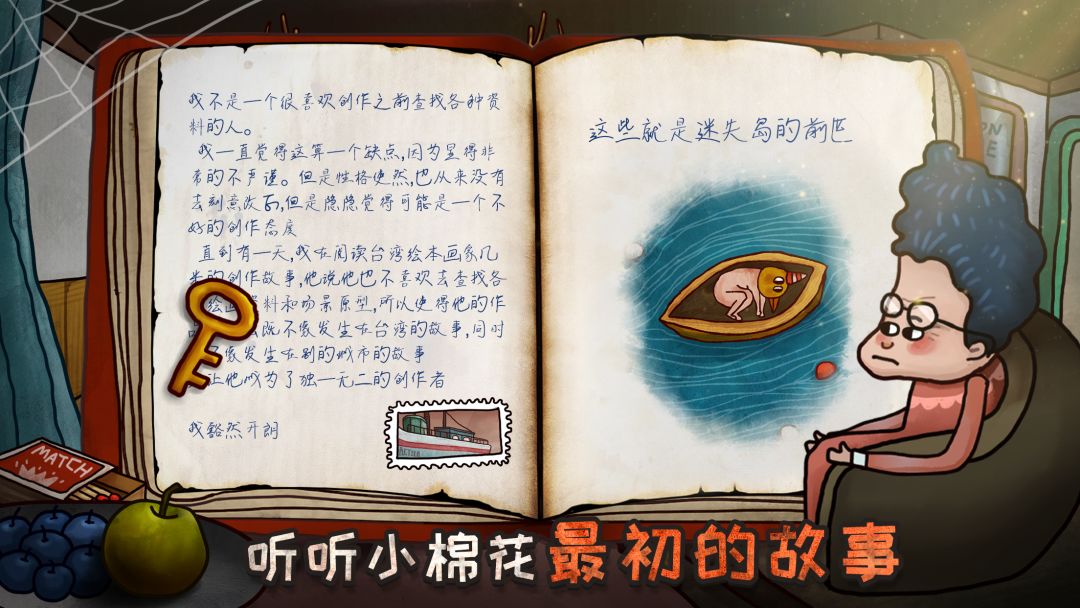 我不是一个很喜欢创作之前查找各种资
料的人。
我一直觉得这算一个缺点,因为显得非
常的不严谨。但是性格使然,也从来没有
去刻意改正,但是隐隐觉得可能是一个不
好的创作态度
直到有一天,我在阅读台湾绘本画家几
米的创作故事,他说他也不喜欢去查找各
绘画资料和场景原型,所以使得他的作
既不像发生在台湾的故事,同时
不像发生在别的城市的故事
让他成为了独一无二的创作者
我豁然开朗
这些就是迷失岛的前世
MATCH
听听小棉花最初的故事